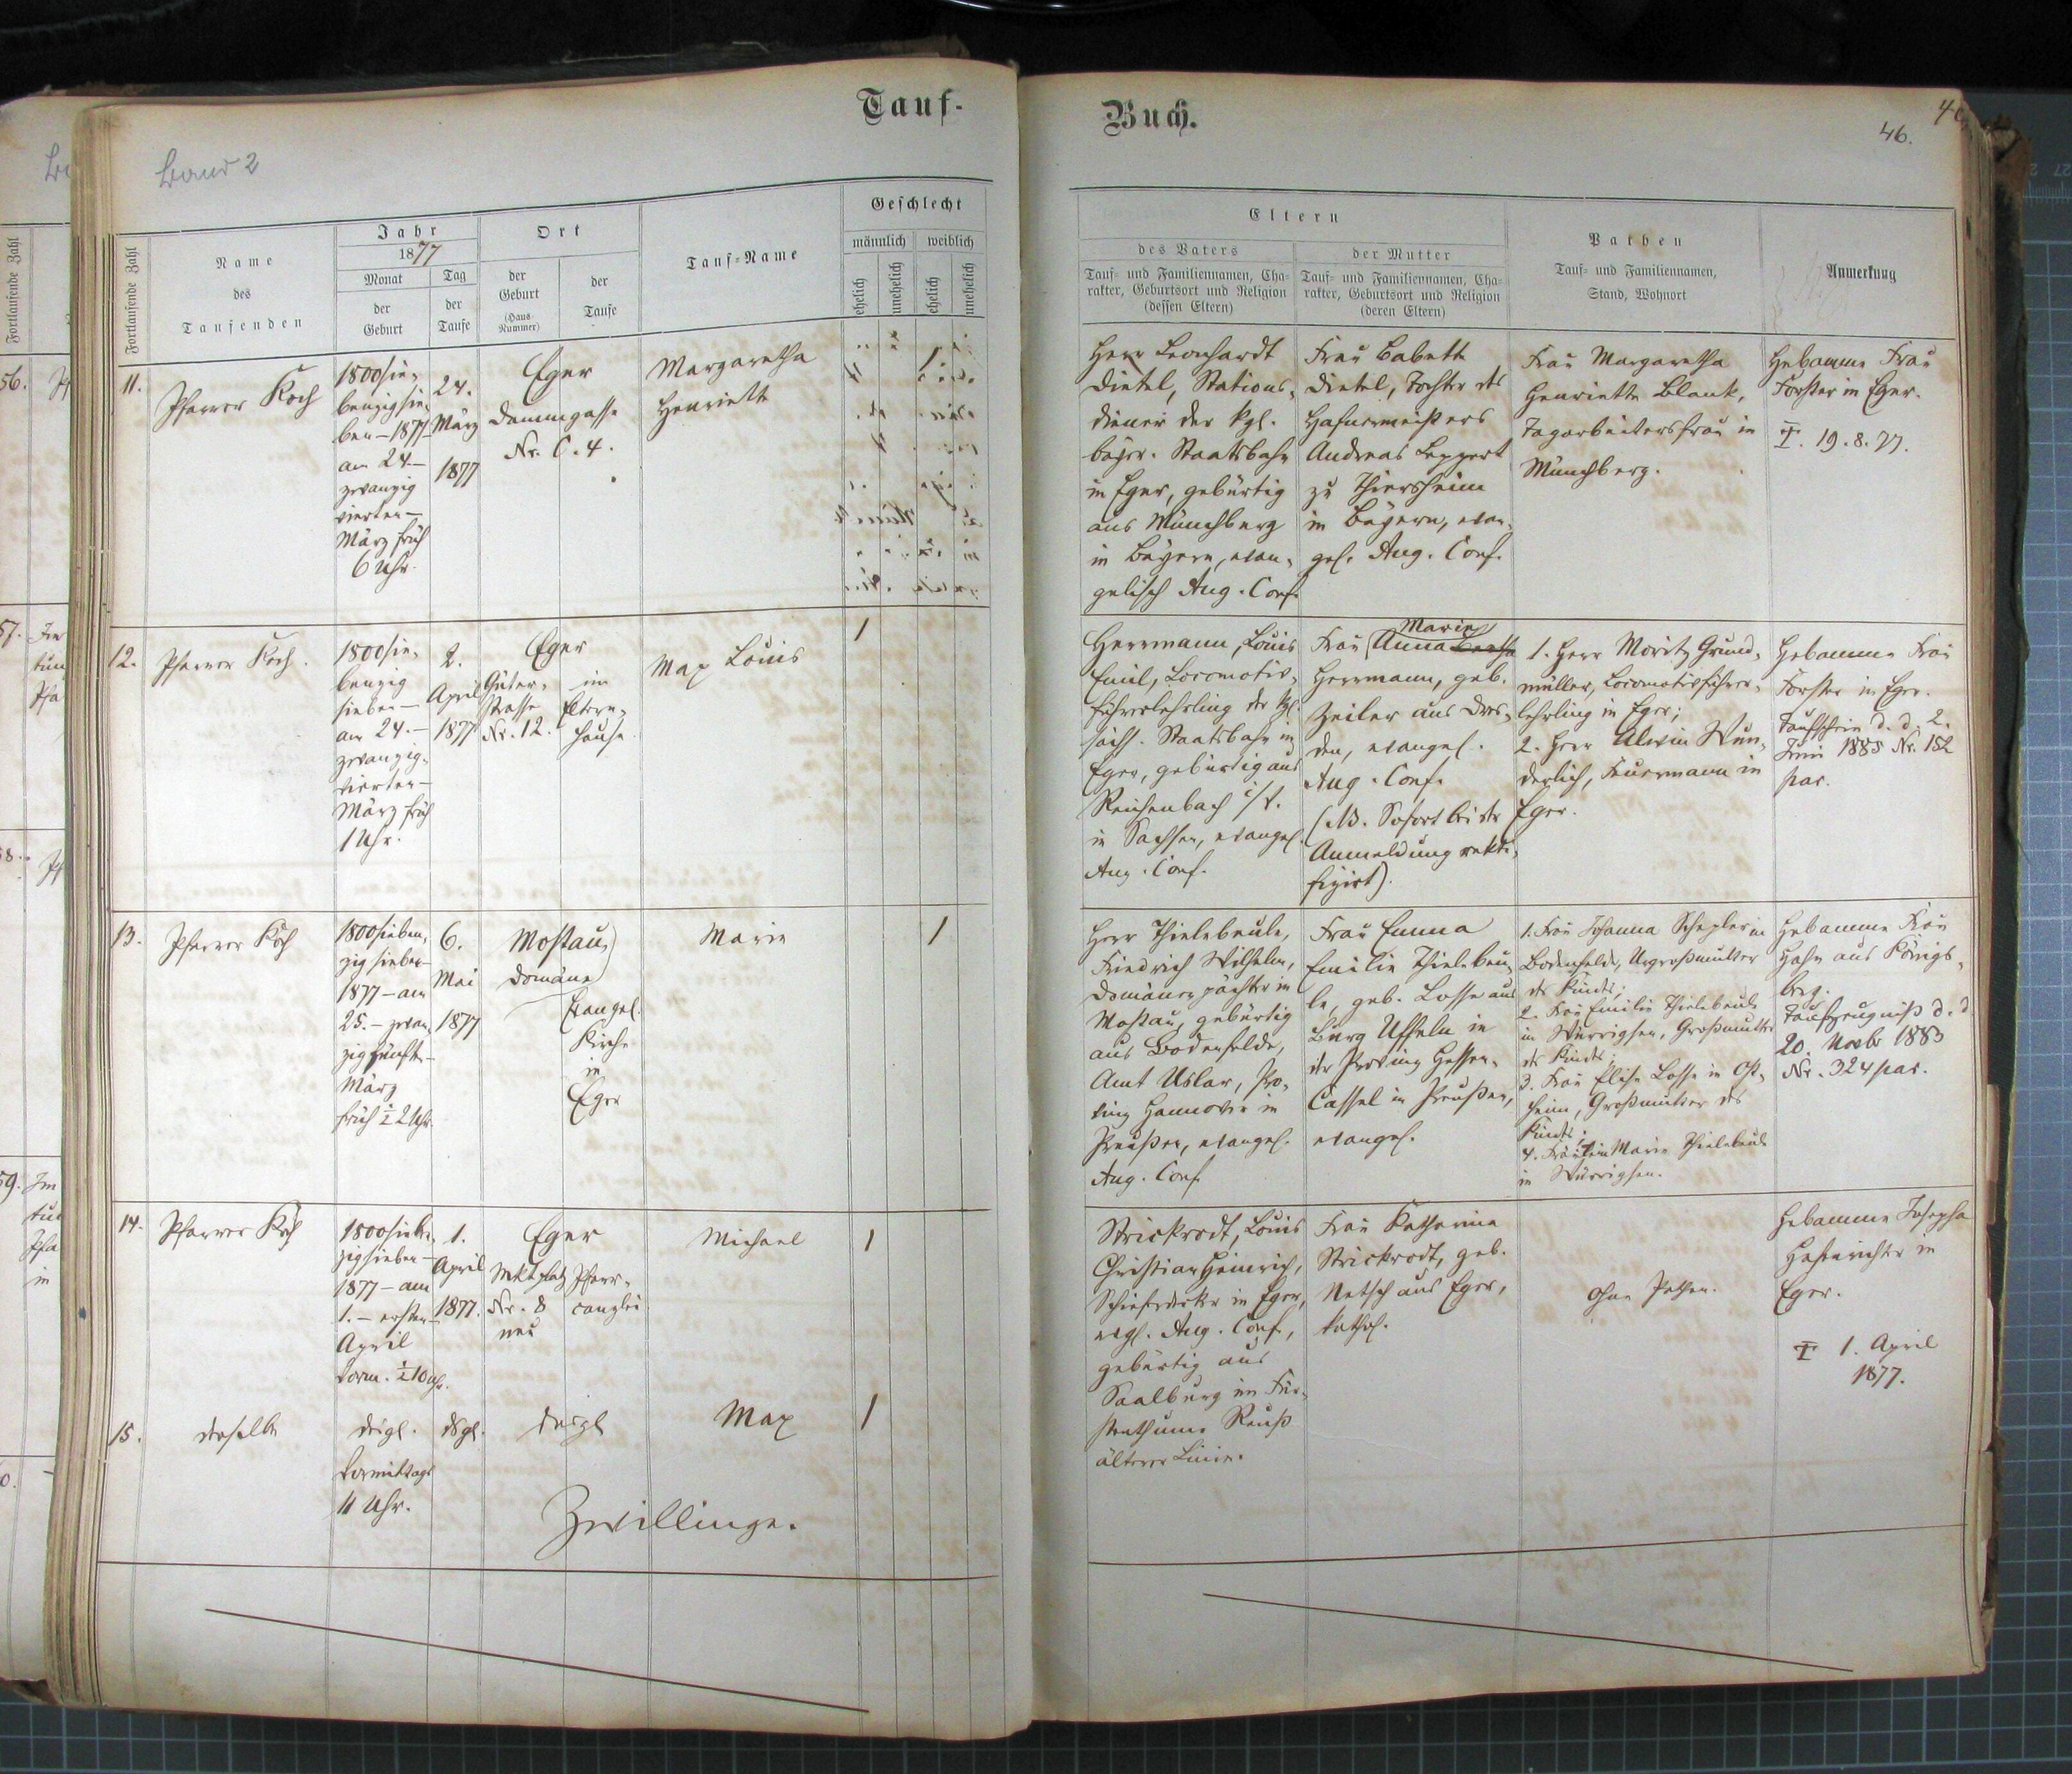 Tauf-
Buch.
46.
Band 2
Fortlaufende Zahl
Name
des
Taufenden
Jahr
1877
Monat
der
Geburt
Tag
der
Taufe
Ort
der
Geburt
(Haus-
Nummer)
der
Taufe
Tauf-Name
Geschlecht
männlich
weiblich
ehelich
unehelich
ehelich
unehelich
Eltern
des Vaters
Tauf- und Familiennamen, Cha-
rakter, Geburtsort und Religion
(dessen Eltern)
der Mutter
Tauf- und Familiennamen, Cha-
rakter, Geburtsort und Religion
(deren Eltern)
Pathen
Tauf- und Familiennamen,
Stand, Wohnort
Anmerkung
11.
Pfarrer Koch
1800sie-
benzigsie-
ben – 1877
am 24. –
zwanzig
vierten –
März früh
6 Uhr.
24.
März
1877
Eger
Dammgasse
Nr. C. 4.
Margaretha
Henriette
1
Herr Leonhardt
Dietel, Stations-
diener der kgl.
bayr. Staatsbahn
in Eger, gebürtig
aus Münchberg
in Bayern, evan-
gelisch Aug. Conf.
Frau Babette
Dietel, Tochter des
Hafnermeisters
Andreas Leppert
zu Thiersheim
in Bayern, evan-
gel. Aug. Conf.
Frau Margaretha
Henriette Blank,
Tagarbeitersfrau in
Münchberg.
Hebamme Frau
Forster in Eger.
19. 8. 77.
12.
Pfarrer Koch.
1800sie-
benzig
sieben –
am 24. –
zwanzig-
vierten –
März früh
1 Uhr.
2.
April
1877
Eger
Güter-
strasse
Nr. 12.
im
Eltern-
hause
Max Louis
1
Herrmann, Louis
Emil, Locomotiv-
führerlehrling der kgl.
sächs. Staatsbahn in
Eger, gebürtig aus
Reichenbach i/V.
in Sachsen, evangel.
Aug. Conf.
Marie
Frau Anna
Herrmann, geb.
Zeiler aus Dres-
den, evangel.
Aug. Conf.
(NB. Sofort bei der
Anmeldung rekti-
fizirt).
1. Herr Moritz Grund-
müller, Locomotivführer-
lehrling in Eger;
2. Herr Alwin Wun-
derlich, Feuermann in
Eger.
Hebamme Frau
Forster in Eger.
Taufschein d. d. 2.
Juni 1885 Nr. 152
par.
13.
Pfarrer Koch
1800sieben-
zig sieben –
1877 – am
25. – zwan-
zig fünften –
März
früh ½ 2 Uhr.
6.
Mai
1877
Mostau,
Domäne
Evangel.
Kirche
in
Eger
Marie
1
Herr Thielebeule,
Friedrich Wilhelm,
Domänenpächter in
Mostau, gebürtig
aus Bodenfelde,
Amt Uslar, Pro-
vinz Hannover in
Preußen, evangel.
Aug. Conf.
Frau Emma
Emilie Thielebeu-
le, geb. Losse aus
Burg Uffeln in
der Provinz Hessen-
Cassel in Preußen,
evangel.
1. Frau Johanna Schepler in
Bodenfelde, Urgroßmutter
des Kindes;
2. Frau Emilie Thielebeule
in Würrigsen, Großmutter
des Kindes;
3. Frau Elise Losse in Ost-
heim, Großmutter des
Kindes;
4. Fräulein Marie Thielebeule
in Würrigsen.
Hebamme Frau
Hahn aus Königs-
berg.
Taufzeugniß d. d.
20. Novbr 1883
Nr. 324 par.
14.
Pfarrer Koch
1800sieben-
zigsieben –
1877 – am
1. – ersten –
April
Vorm. ½ 10 Uhr.
1.
April
1877.
Eger
Mktplatz
Nr. 8
neu
Pfarr-
canzlei
Michael
1
Strickrodt, Louis
Christian Heinrich,
Schieferdecker in Eger,
evgl. Aug. Conf.,
gebürtig aus
Saalburg im Für-
stenthume Reuß
älterer Linie.
Frau Katharina
Strickrodt, geb.
Netsch aus Eger,
kathol.
Ohne Pathen.
Hebamme Josepha
Hofurichter in
Eger.
1. April
1877.
15.
derselbe
desgl.
Vormittags
11 Uhr.
dsgl.
desgl
Max
1
Zwillinge.